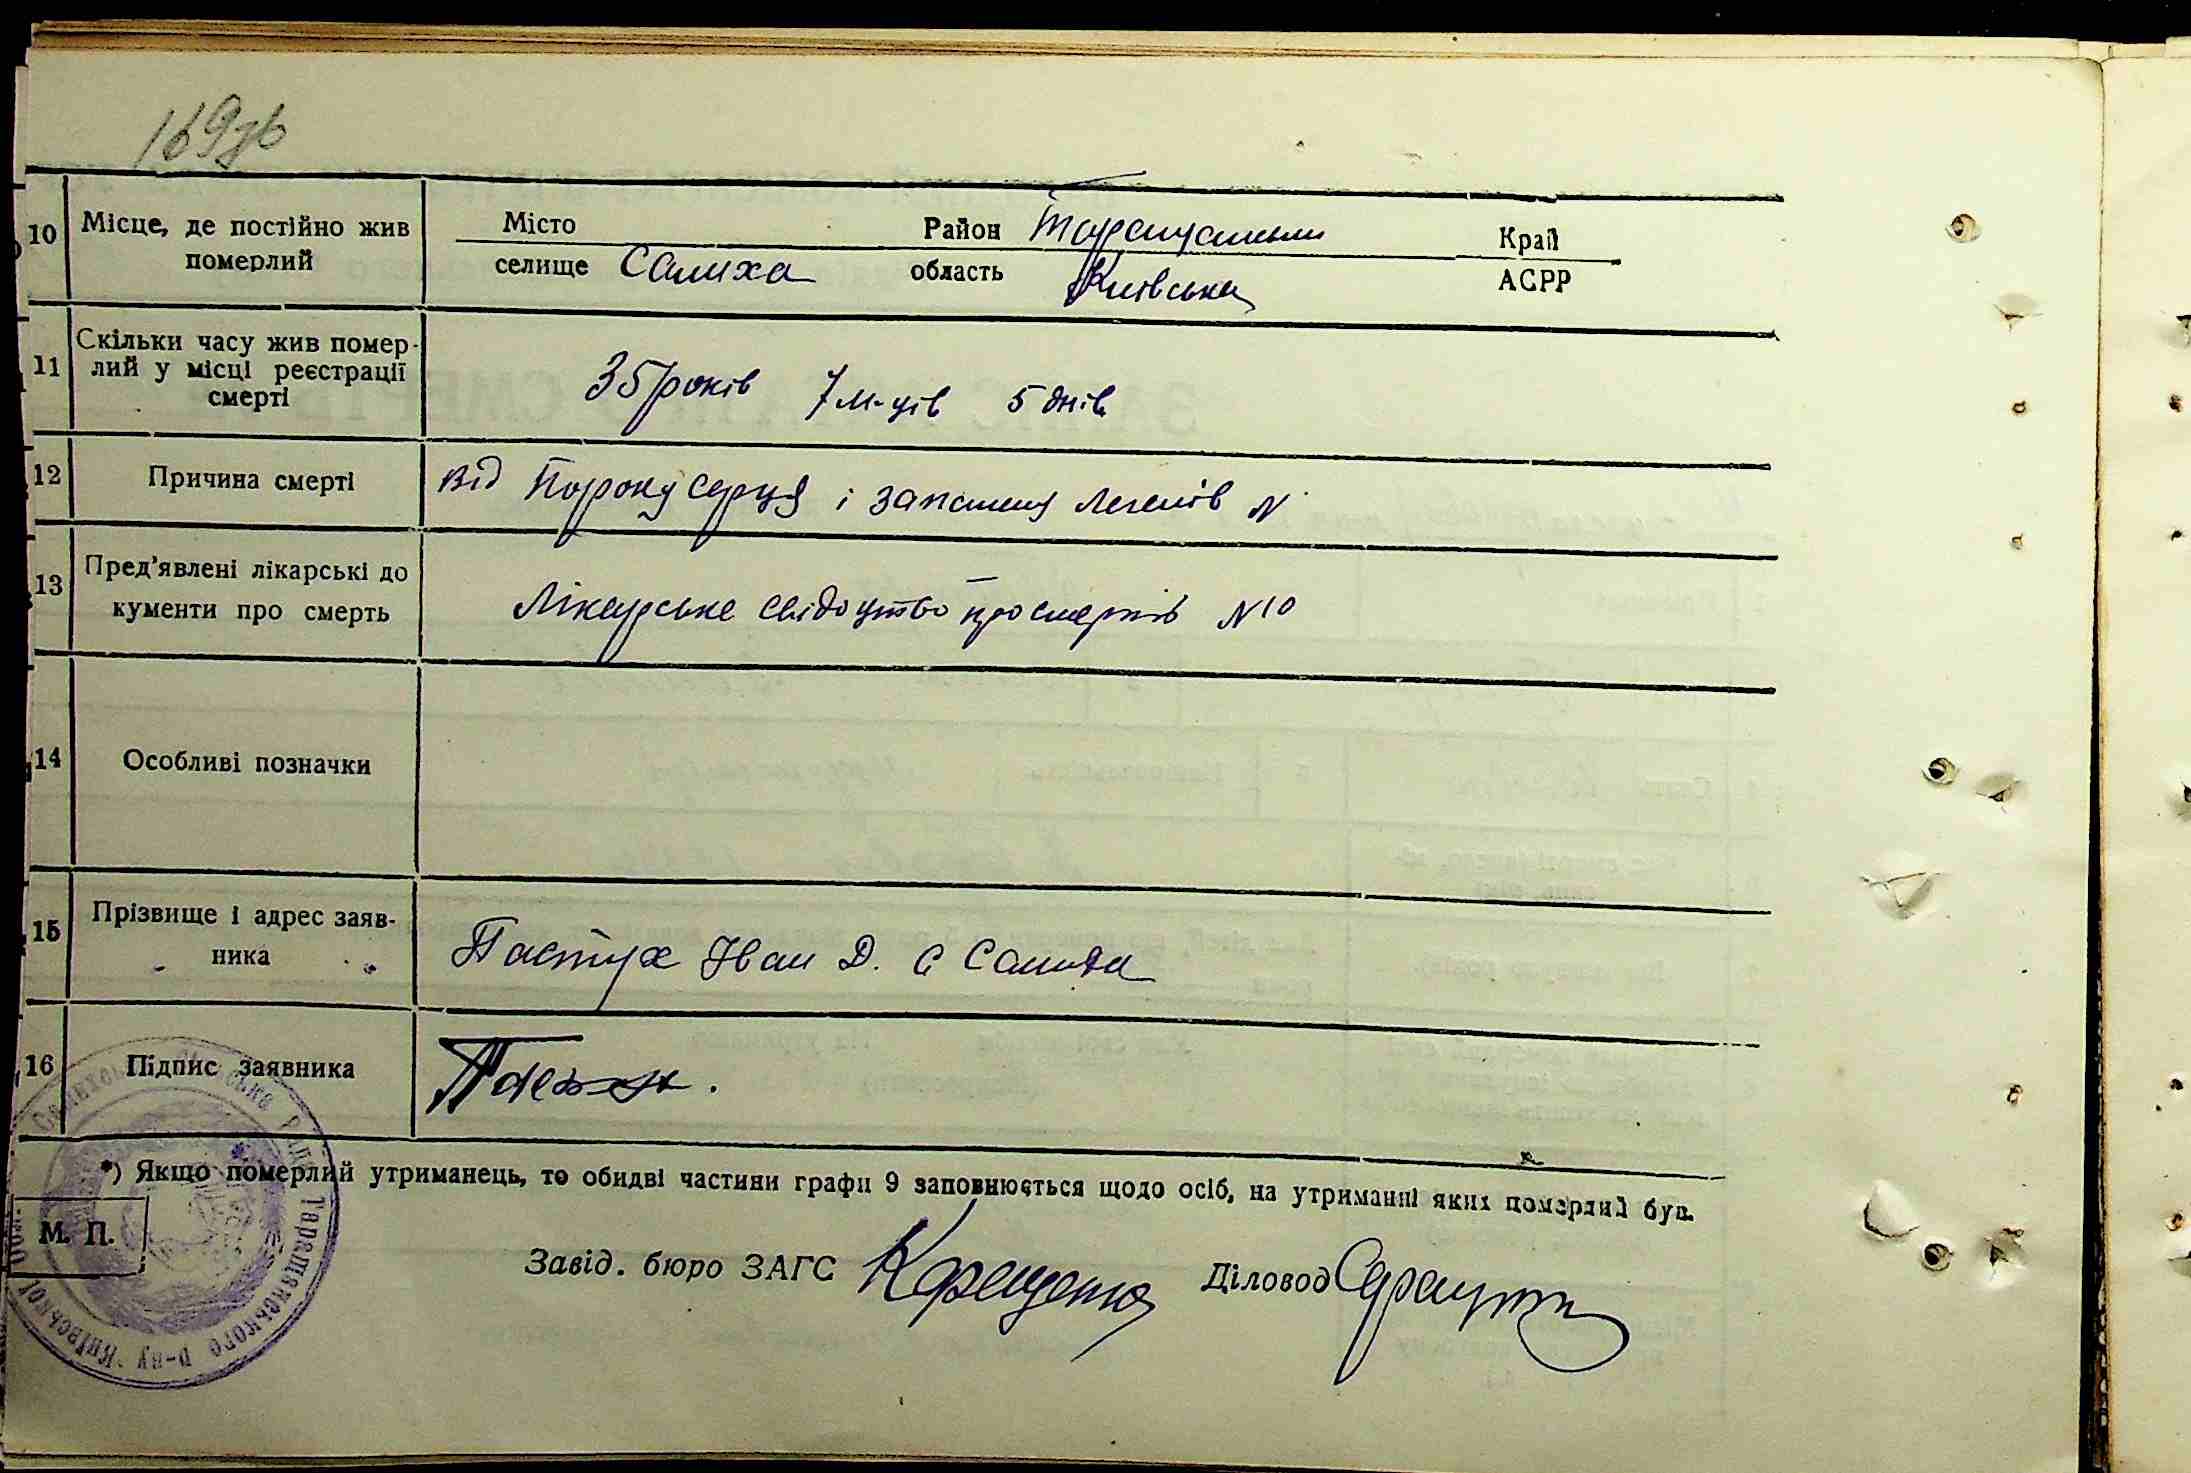 169зв
10 Місце, де постійно жив померлий
Місто Район Таращанський Край
селище Салиха область Київська АСРР
11 Скільки часу жив помер-
лий у місці реєстрації
смерті
35 років 7 м-ців 5 днів
12 Причина смерті від Пороку серця і запалення легенів N
13 Пред'явлені лікарські до
кументи про смерть
Лікарське свідоцтво про смерть N10
14 Особливі позначки
15 Прізвище і адрес заяв-
ника
Пастух Іван Д. с Салиха
16 Підпис заявника
*) Якщо померлий утриманець, то обидві частини графи 9 заповнюється щодо осіб, на утриманні яких померлий був.
М. П.
Завід. бюро ЗАГС Діловод
Таращанського р-ну Київської